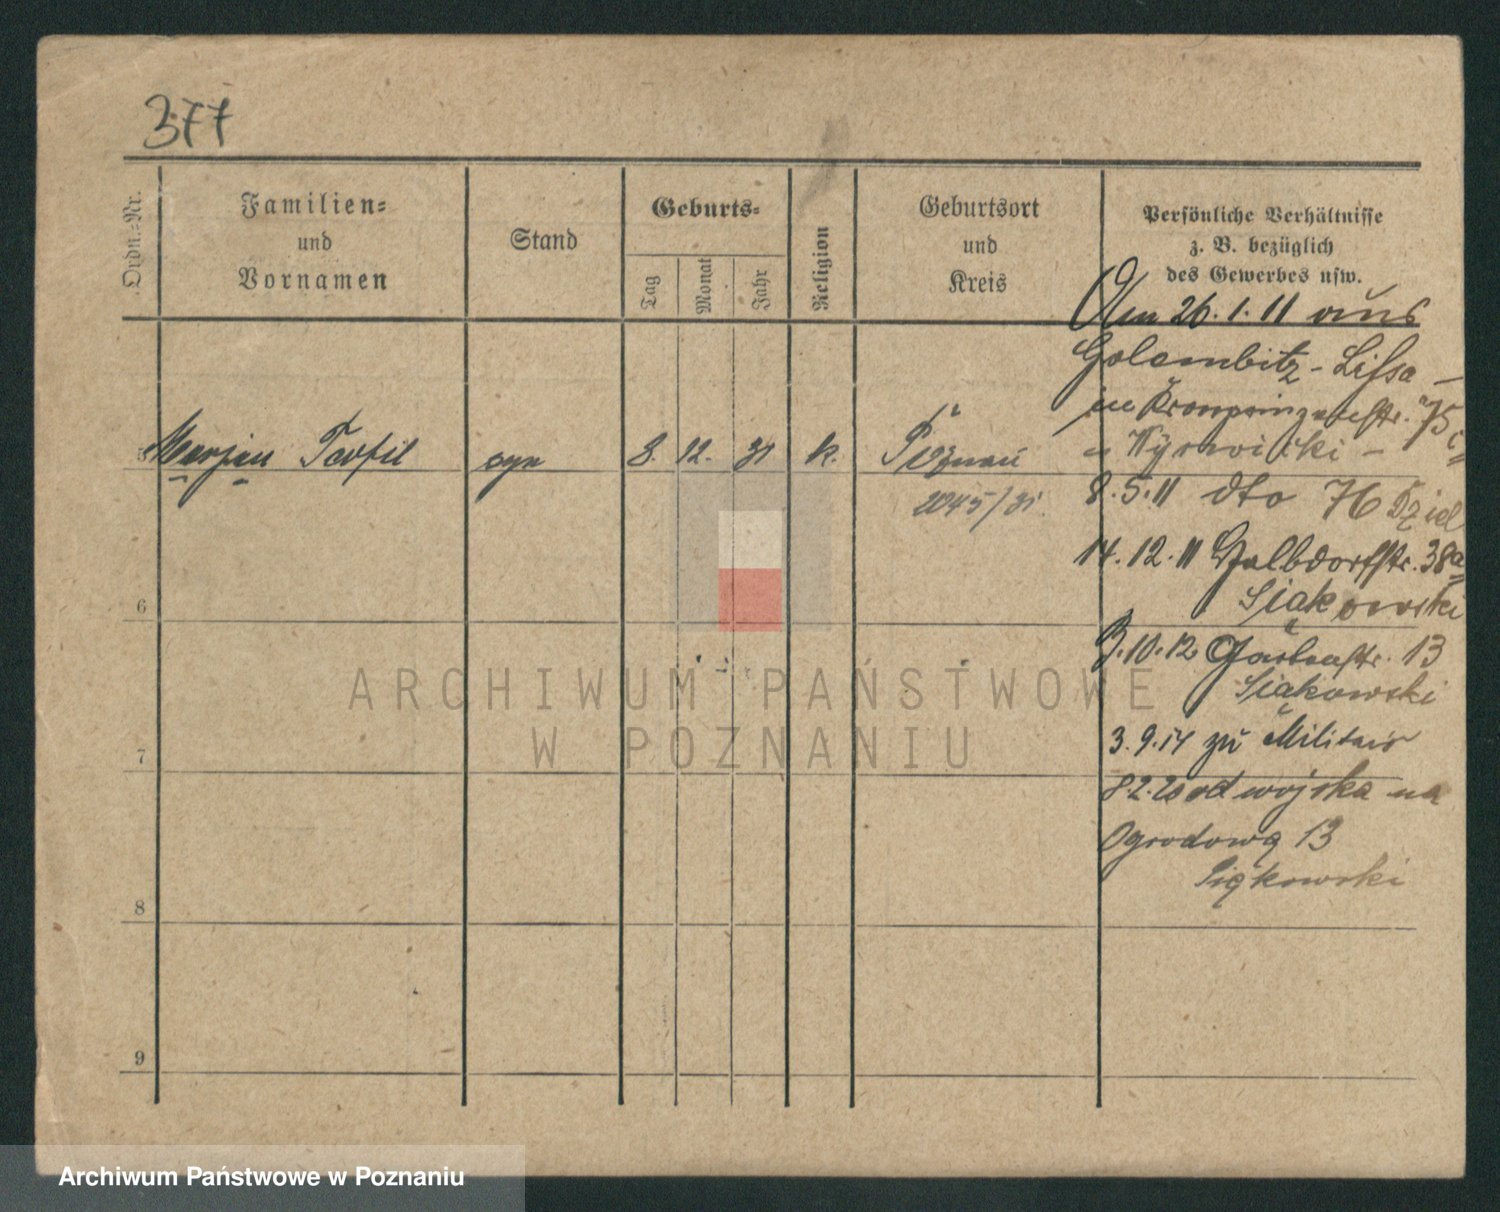 377
Ordn.-Nr.
Familien-
und
Vornamen
Stand
Geburts-
Tag
Monat
Jahr
Religion
Geburtsort
und
Kreis
Persönliche Verhältnisse
z. B. bezüglich
des Gewerbes usw.
Am 26.1.11 aus
Golembitz - Lissa -
in Kronprinzenstr. 75
Wyrwicki -
5 Marjan Teofil syn 8. 12. 31 k. Poznań
2045/31
8.5.11 dto 76 Dziel
14.12.11 Walbdorfstr. 38a
Siąkowski
6
3.10.12 Gartenstr. 13
Siąkowski
3.9.14 zu Militair
7
8.2.20 od wojska na
Ogrodową 13
Siąkowski
8
9
ARCHIWUM PAŃSTWOWE
W POZNANIU
Archiwum Państwowe w Poznaniu